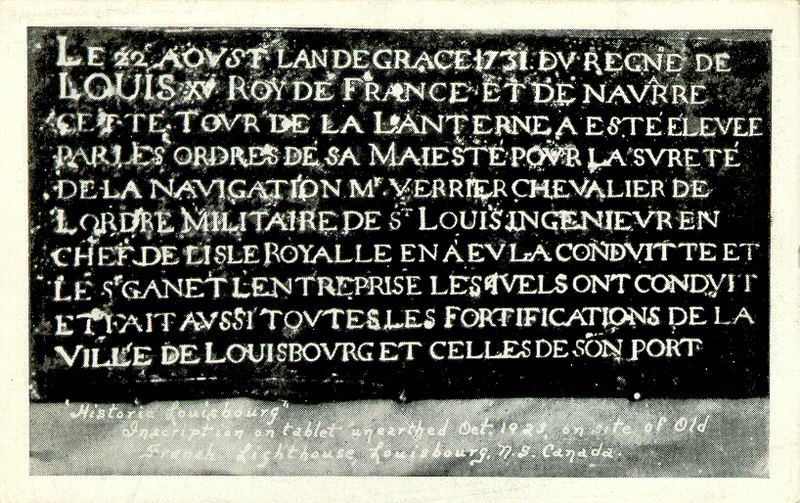 LE 22 AOVST LAN DE GRACE 1731. DV REGNE DE
LOUIS XV ROY DE FRANCE ET DE NAVRRE
CETTE TOVR DE LA LANTERNE A ESTÉ ELEVEE
PAR LES ORDRES DE SA MAIESTE POVR LA SVRETÉ
DE LA NAVIGATION Mr. VERRIER CHEVALIER DE
LORDRE MILITAIRE DE ST LOUIS. INGENIEVR EN
CHEF. DE LISLE ROYALLE EN A EV LA CONDVITTE ET
LE Sr GANET LENTREPRISE LESQVELS ONT CONDVIT
ET FAIT AVSSI TOVTES LES FORTIFICATIONS DE LA
VILLE DE LOUISBOVRG ET CELLES DE SON PORT
"Historic Louisbourg"
Inscription on tablet unearthed Oct. 1923, on site of Old
French Lighthouse, Louisbourg, N.S. Canada.